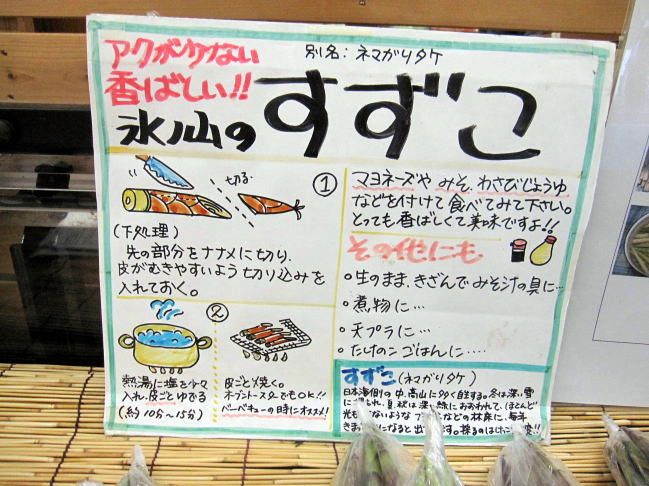 アクが少ない
香ばしい!!
別名：ネマガリタケ
氷ノ山のすずこ
切る
①
(下処理)
先の部分をナナメに切り、
皮がむきやすいよう切り込みを
入れておく。
②
熱湯に塩を少々
入れ、皮ごとゆでる
(約10分～15分)
皮ごと焼く。
オーブントースターでもOK!!
バーベキューの時にオススメ!
マヨネーズや みそ、わさびじょうゆ
などを付けて食べてみて下さい。
とっても香ばしくて美味ですよ!!
その他にも
・生のまま、きざんでみそ汁の具に…
・煮物に…
・天プラに…
・たけのこごはんに……
すずこ (ネマガリタケ)
日本海側の中、高山に多く自生する。冬は深い雪
深い緑におおわれて、ほとんど
光も ないような ブナ などの林床に、毎年
になると出